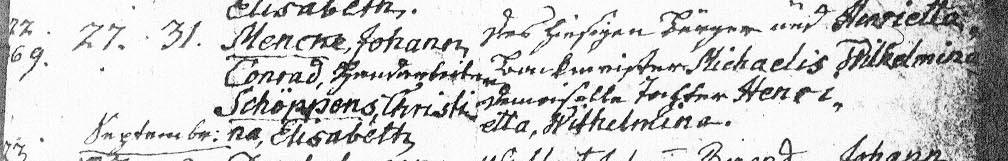 Elisabeth,
22. 27. 31. Mencke, Johann des hiesigen Bürger und Henrietta,
69. Conrad, Handarbeiter Backmeister Michaelis Wilhelmina
Schöppens, Christi- Demoiselle Tochter Henri-
Septembr: na, Elisabeth etta, Wilhelmina.
Johann